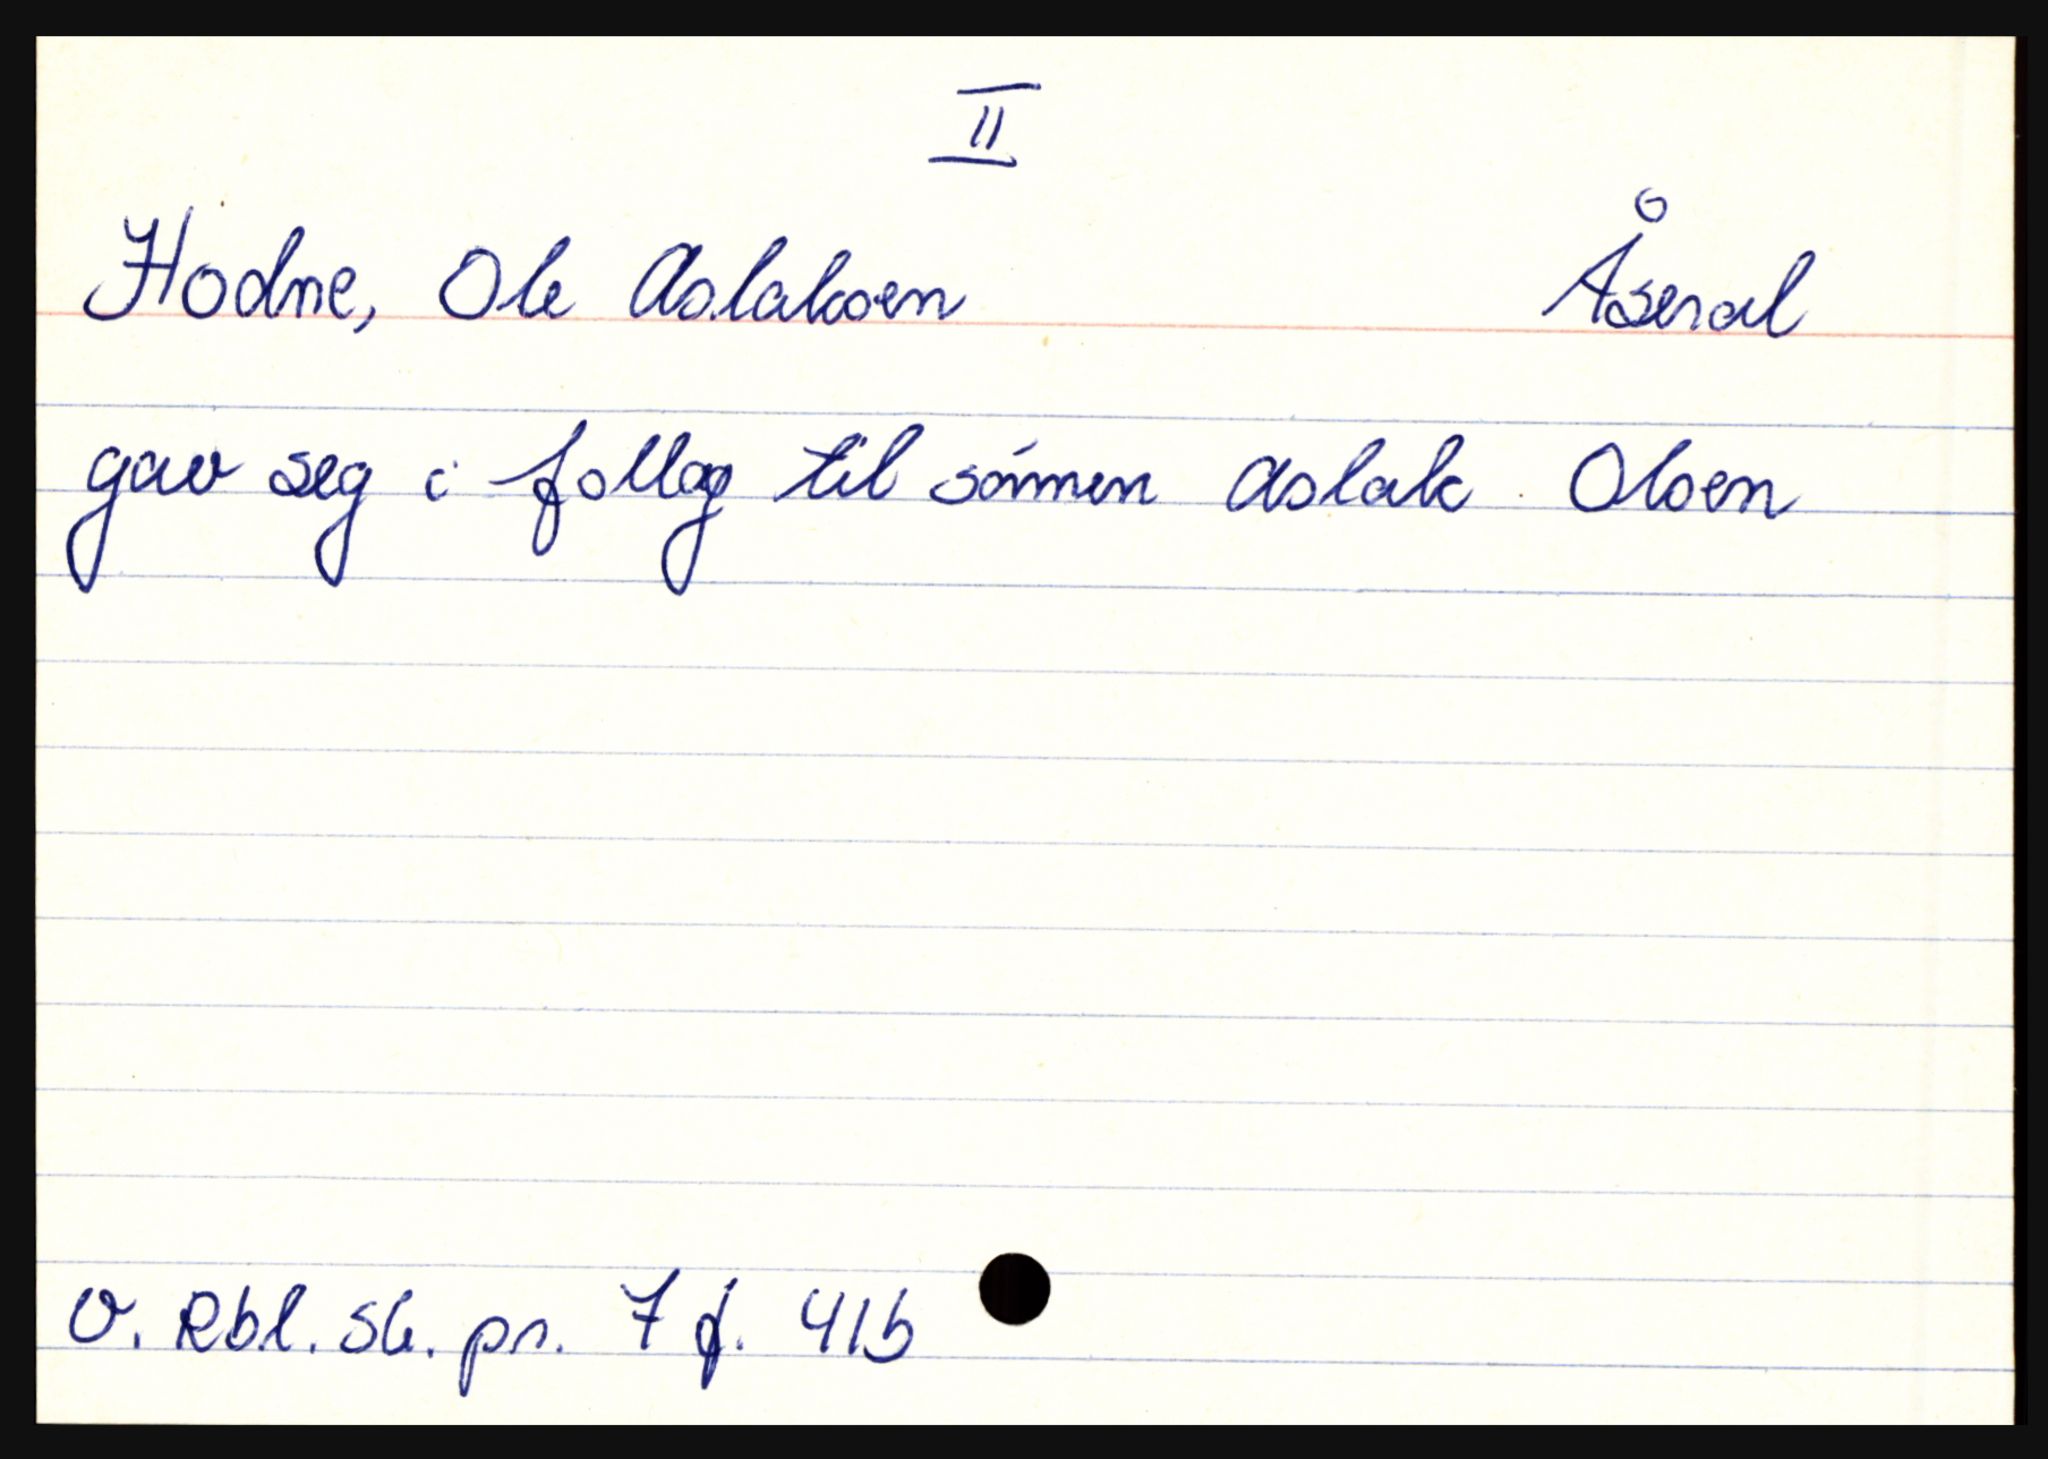 II
Hodne, Ole Aslaksen Åseral
gav seg i follog til sónnen Aslak Olsen
v. Rbl. sk. pr. 7 f. 41b